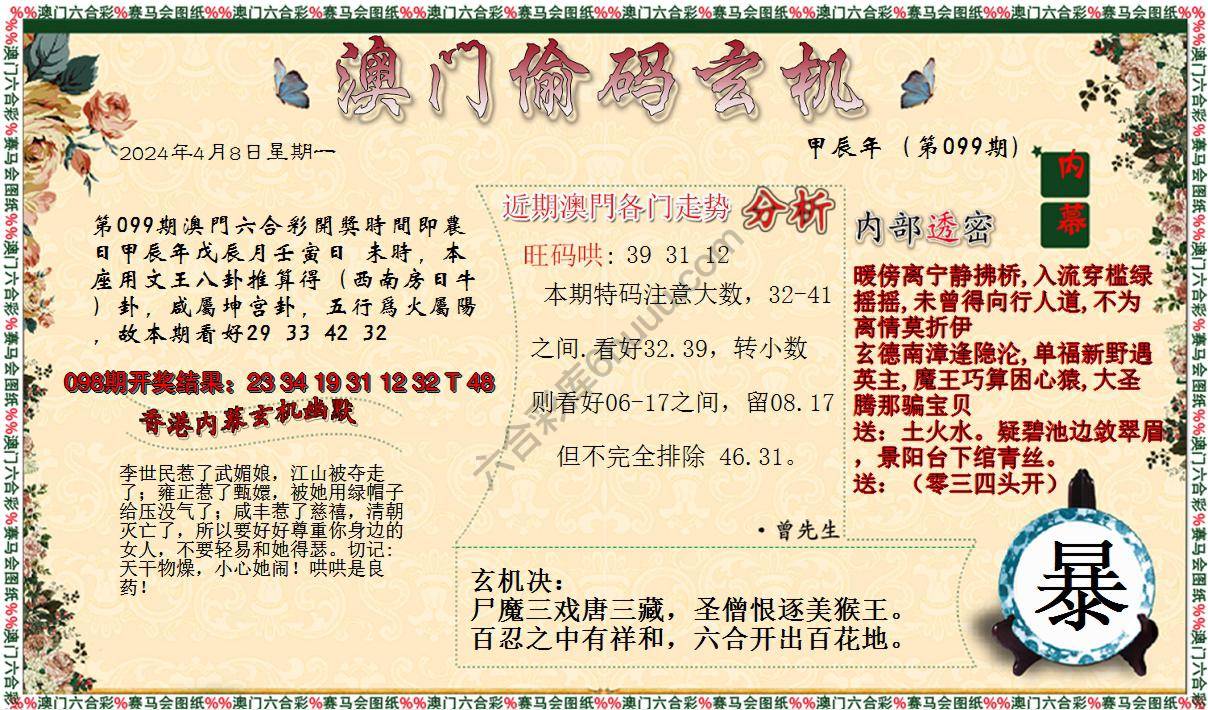 %%澳门六合彩%赛马会图纸%%澳门六合彩%赛马会图纸%%澳门六合彩%赛马会图纸%%澳门六合彩%赛马会图纸%%澳门六合彩%赛马会图纸%%澳门六合彩%赛马会图纸%%
澳门偷码玄机
2024年4月8日星期一
甲辰年（第099期）
内幕
第099期澳門六合彩開獎時間即農
日甲辰年戊辰月壬寅日 未時，本
座用文王八卦推算得（西南房日牛
）卦，咸屬坤宫卦，五行爲火屬陽
，故本期看好29 33 42 32
098期开奖结果：23 34 19 31 12 32 T 48
香港内幕玄机幽默
李世民惹了武媚娘，江山被夺走
了；雍正惹了甄嬛，被她用绿帽子
给压没气了；咸丰惹了慈禧，清朝
灭亡了，所以要好好尊重你身边的
女人，不要轻易和她得瑟。切记：
天干物燥，小心她闹！哄哄是良
药！
近期澳門各门走势 分析
旺码哄：39 31 12
本期特码注意大数，32-41
之间.看好32.39，转小数
则看好06-17之间，留08.17
但不完全排除 46.31。
·曾先生
内部透密
暖傍离宁静拂桥,入流穿槛绿
摇摇,未曾得向行人道,不为
离情莫折伊
玄德南漳逢隐沦,单福新野遇
英主,魔王巧算困心猿,大圣
腾那骗宝贝
送：土火水。疑碧池边敛翠眉
，景阳台下绾青丝。
送：（零三四头开）
玄机决：
尸魔三戏唐三藏，圣僧恨逐美猴王。
百忍之中有祥和，六合开出百花地。
暴